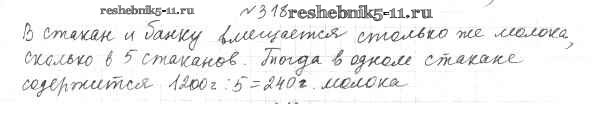 №318 reshebnik5-11.ru
В стакан и банку вмещается столько же молока,
сколько в 5 стаканов. Тогда в одном стакане
содержится 1200г : 5 = 240г. молока
reshebnik5-11.ru